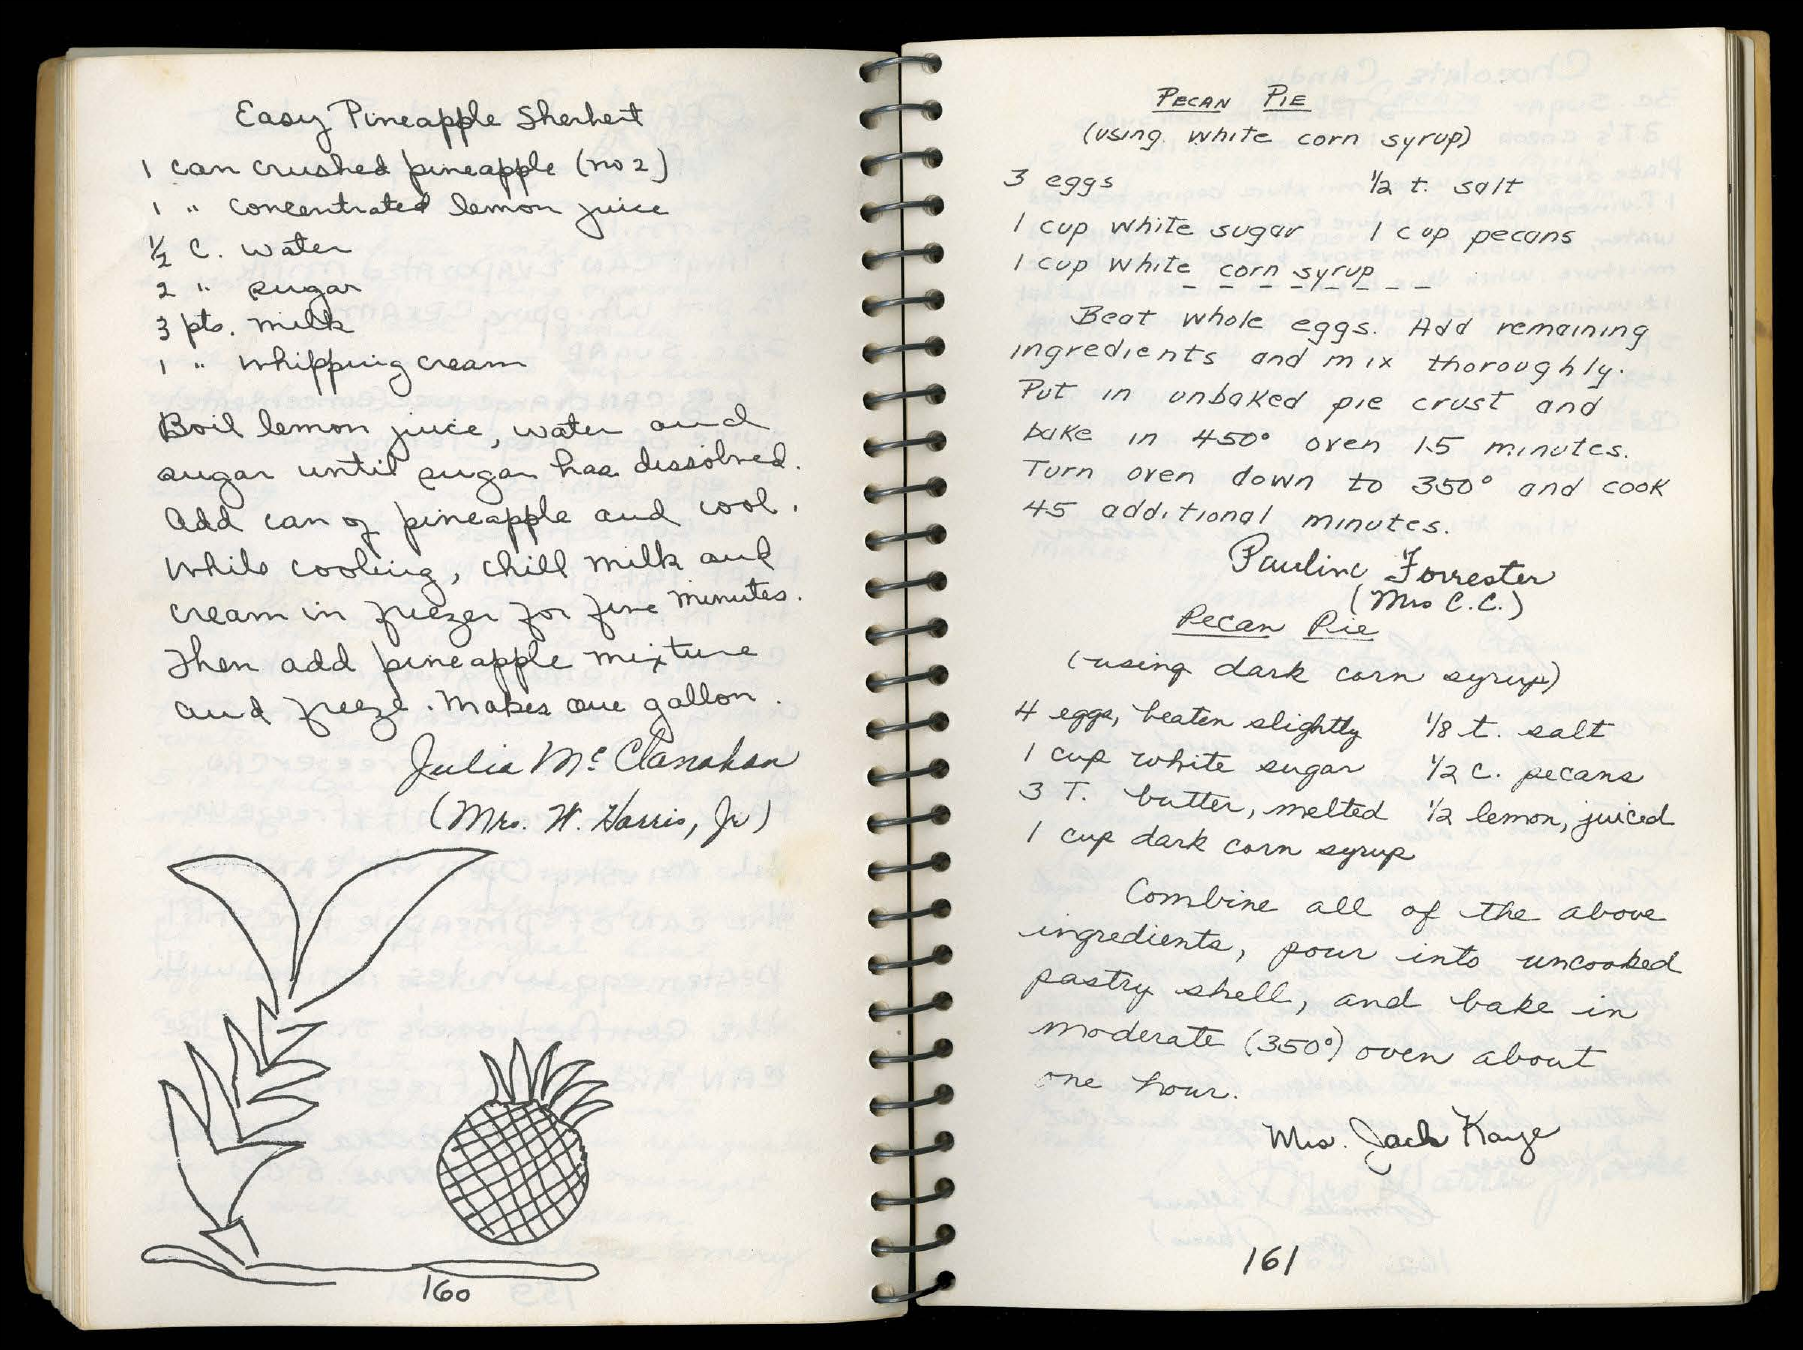 Easy Pineapple Sherbert
1 can crushed pineapple (no 2)
1 " concentrated lemon juice
1/2 C. water
2 " sugar
3 pts. milk
1 " whipping cream
Boil lemon juice, water and
sugar until sugar has dissolved.
Add can of pineapple and cool.
While cooling, chill milk and
cream in freezer for five minutes.
Then add pineapple mixture
and freeze. Makes one gallon.
Julia McClanahan
(Mrs. W. Harris, Jr)
160
PECAN PIE
(using white corn syrup)
3 eggs 1/2 t. salt
1 cup white sugar 1 cup pecans
1 cup white corn syrup
Beat whole eggs. Add remaining
ingredients and mix thoroughly.
Put in unbaked pie crust and
bake in 450° oven 15 minutes.
Turn oven down to 350° and cook
45 additional minutes.
Pauline Forrester
(Mrs C.C.)
Pecan Pie
(using dark corn syrup)
4 eggs, beaten slightly 1/8 t. salt
1 cup white sugar 1/2 c. pecans
3 T. butter, melted 1/2 lemon, juiced
1 cup dark corn syrup
Combine all of the above
ingredients, pour into uncooked
pastry shell, and bake in
moderate (350°) oven about
one hour.
Mrs. Jack Kaye
161